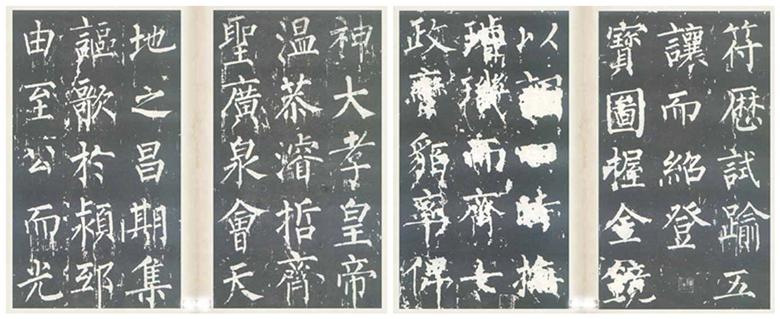 神大孝皇帝
溫恭濬哲齊
聖廣泉會天
地之昌期集
謳歌於潁邸
由至公而光
符歷試踰五
讓而紹登
寶圖握金鏡
以時撫
璿璣而齊七
政蠻貊率俾